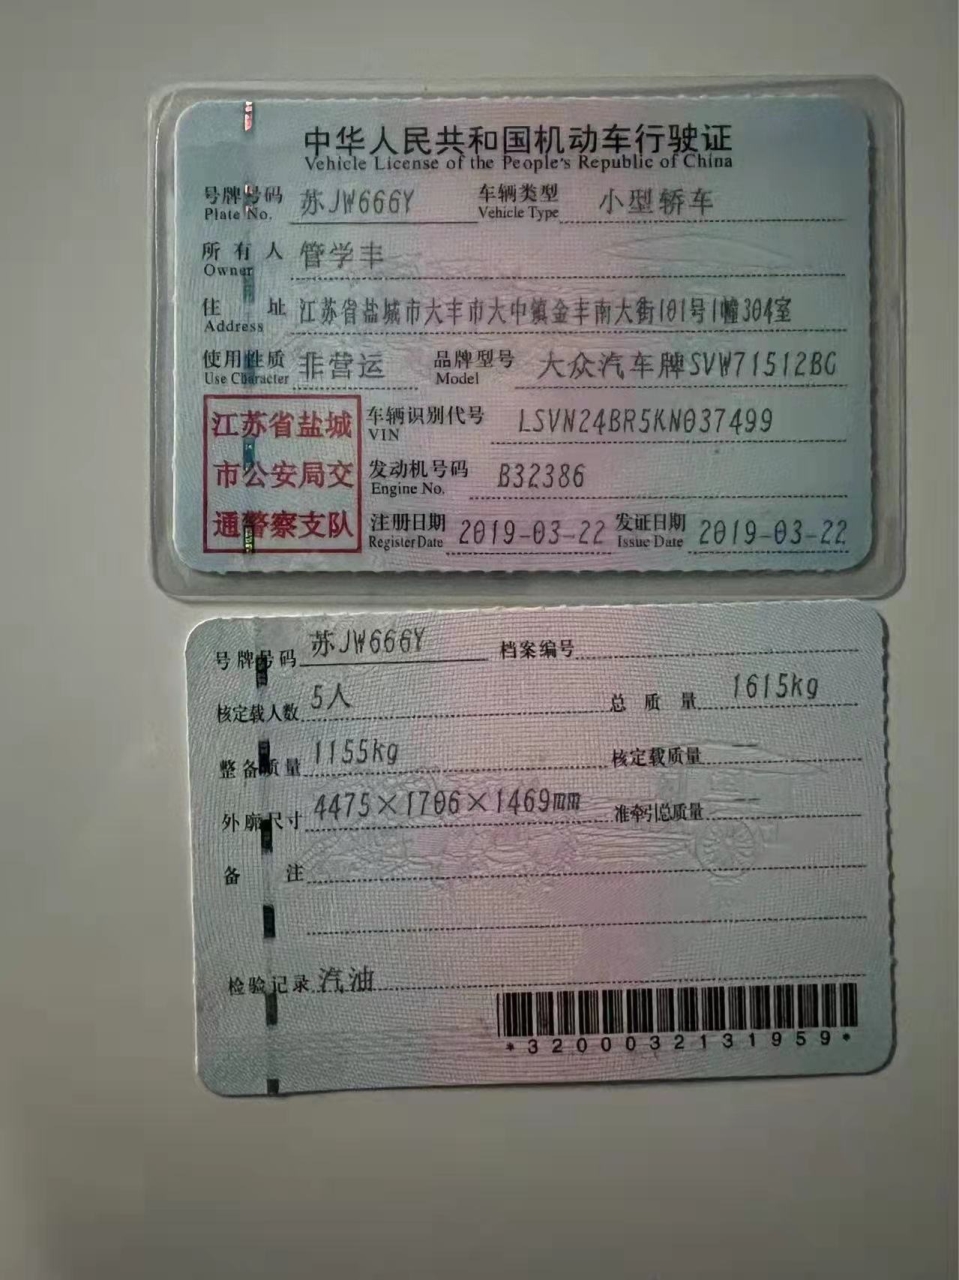 中华人民共和国机动车行驶证
Vehicle License of the People's Republic of China
号牌号码 苏JW666Y 车辆类型 小型轿车
Plate No. Vehicle Type
所有人 管学丰
Owner
住址 江苏省盐城市大丰市大中镇金丰南大街101号1幢304室
Address
使用性质 非营运 品牌型号 大众汽车牌SVW71512BC
Use Character Model
江苏省盐城
市公安局交
通警察支队
车辆识别代号 LSVN24BR5KN037499
VIN
发动机号码 B32386
Engine No.
注册日期 2019-03-22 发证日期 2019-03-22
Register Date Issue Date
号牌号码 苏JW666Y 档案编号
核定载人数 5人 总质量 1615kg
整备质量 1155kg 核定载质量 --
外廓尺寸 4475×1706×1469mm 准牵引总质量 --
备注
检验记录 汽油
*3200032131959*